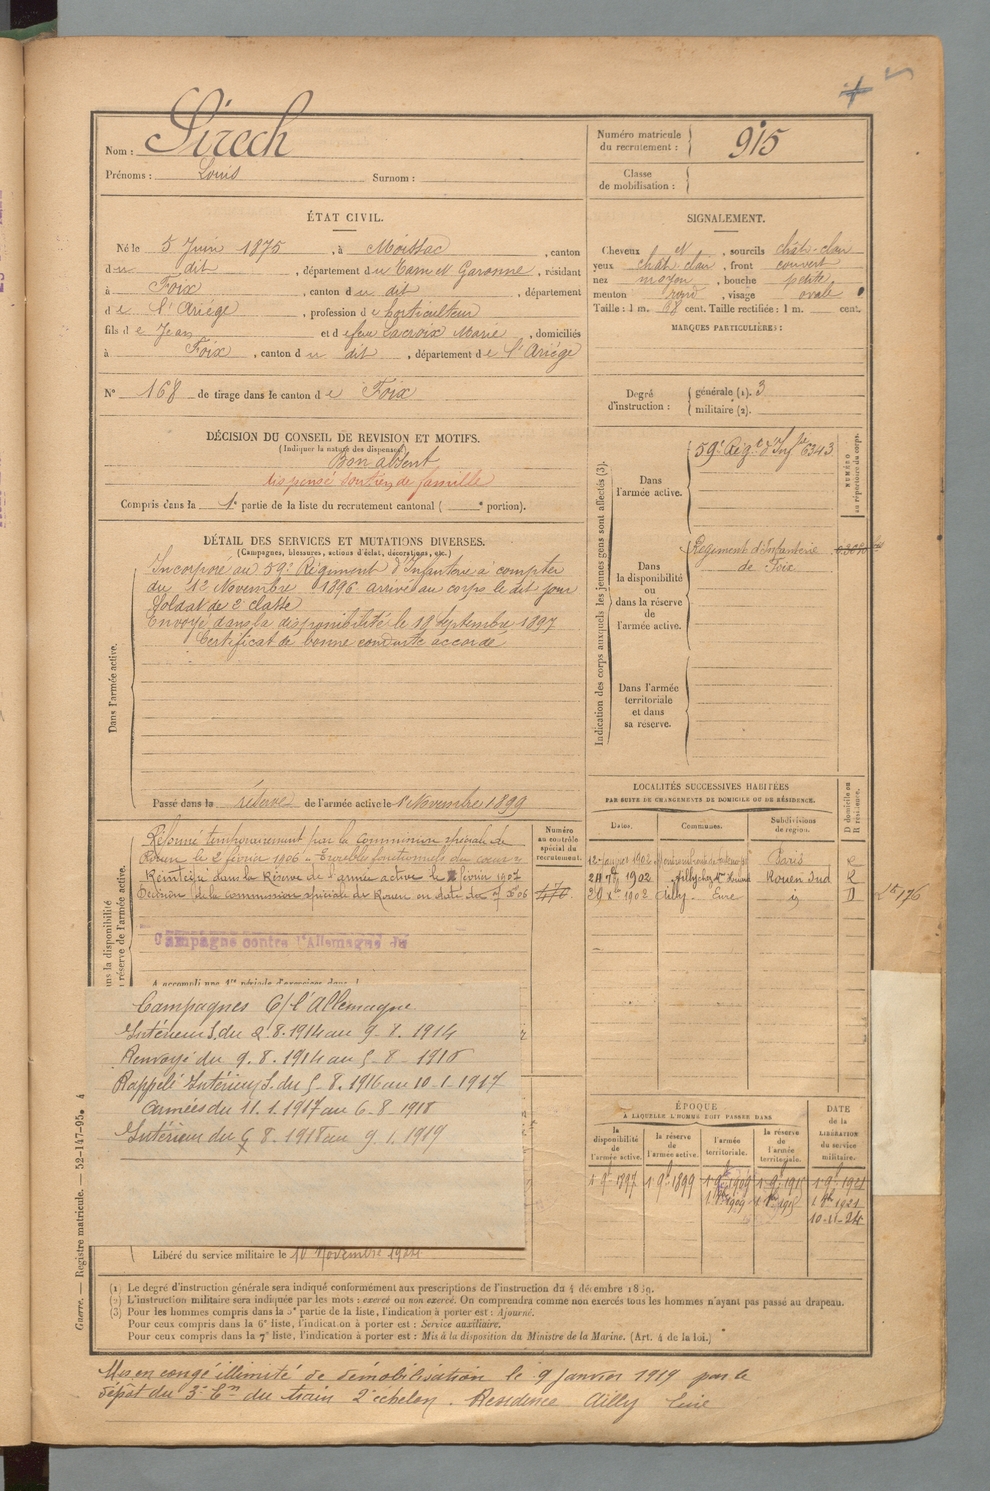 Nom : Sirech
Prénoms : Louis Surnom :
Numéro matricule du recrutement : 915
Classe de mobilisation :
ÉTAT CIVIL.
Né le 5 Juin 1875, à Moissac, canton
du dit, département du Tarn et Garonne, résidant
à Foix, canton du dit, département
de l'Ariège, profession de horticulteur
fils de Jean et de feu Lacroix Marie, domiciliés
à Foix, canton du dit, département de l'Ariège
N° 168 de tirage dans le canton de Foix
SIGNALEMENT.
Cheveux et, sourcils chât-clair
yeux chât-clair, front couvert
nez moyen, bouche petite
menton rond, visage ovale
Taille : 1 m. 68 cent. Taille rectifiée : 1 m. cent.
MARQUES PARTICULIÈRES :
Degré d'instruction : générale (1). 3
militaire (2).
DÉCISION DU CONSEIL DE REVISION ET MOTIFS.
(Indiquer la nature des dispenses)
Bon absent
dispensé soutien de famille
Compris dans la 1e partie de la liste du recrutement cantonal ( e portion).
Indication des corps auxquels les jeunes gens sont affectés (3).
NUMÉRO au répertoire du corps.
Dans l'armée active.
59e Régt d'Infie 6343
Dans la disponibilité ou dans la réserve de l'armée active.
Régiment d'Infanterie
de Foix
Dans l'armée territoriale et dans sa réserve.
DÉTAIL DES SERVICES ET MUTATIONS DIVERSES.
(Campagnes, blessures, actions d'éclat, décorations, etc.)
Dans l'armée active.
Incorporé au 59e Régiment d'Infanterie à compter
du 12 Novembre 1896 arrivé au corps le dit jour
Soldat de 2e classe
Envoyé dans la disponibilité le 18 Septembre 1897
Certificat de bonne conduite accordé
Passé dans la réserve de l'armée active le 1 Novembre 1899
LOCALITÉS SUCCESSIVES HABITÉES
PAR SUITE DE CHANGEMENTS DE DOMICILE OU DE RÉSIDENCE.
Dates. Communes. Subdivisions de région. D domicile ou R résidence.
12 1902 Paris R
24 7bre 1902 Ailly chez Mr Rouen Sud R
29 Xbre 1902 Ailly - Eure id D
Numéro au contrôle spécial du recrutement.
Réformé temporairement par la commission spéciale de
Rouen le 2 février 1906
Réintégré dans la Réserve de l'armée active le février 1907
Décision de la commission spéciale de Rouen en date du
470
Campagne contre l'Allemagne du
A accompli une 1re période d'exercices dans
Campagnes C/ l'Allemagne
Intérieur S. du 2.8.1914 au 9.8.1914
Renvoyé du 9.8.1914 au 5-8-1916
Rappelé Intérieur S. du 5-8.1916 au 10-1-1917
Armées du 11.1.1917 au 6-8-1918
Intérieur du 8.1918 au 9.1.1919
Libéré du service militaire le 10 Novembre 1924
ÉPOQUE
À LAQUELLE L'HOMME DOIT PASSER DANS
DATE de la LIBÉRATION du service militaire.
la disponibilité de l'armée active. la réserve de l'armée active. l'armée territoriale. la réserve de l'armée territoriale.
1. 9bre 1897 1. 9bre 1899 1. 9bre 1909 1. 9bre 1915 1. 9bre 1921
1921
10-11-24
(1) Le degré d'instruction générale sera indiqué conformément aux prescriptions de l'instruction du 4 décembre 1889.
(2) L'instruction militaire sera indiquée par les mots : exercé ou non exercé. On comprendra comme non exercés tous les hommes n'ayant pas passé au drapeau.
(3) Pour les hommes compris dans la 5e partie de la liste, l'indication à porter est : Ajourné.
Pour ceux compris dans la 6e liste, l'indication à porter est : Service auxiliaire.
Pour ceux compris dans la 7e liste, l'indication à porter est : Mis à la disposition du Ministre de la Marine. (Art. 4 de la loi.)
Guerre. — Registre matricule. — 52-147-95. 4
Mis en congé illimité de démobilisation le 9 Janvier 1919 par le
dépôt du 3e Eon du train 2e échelon. Résidence Ailly Eure